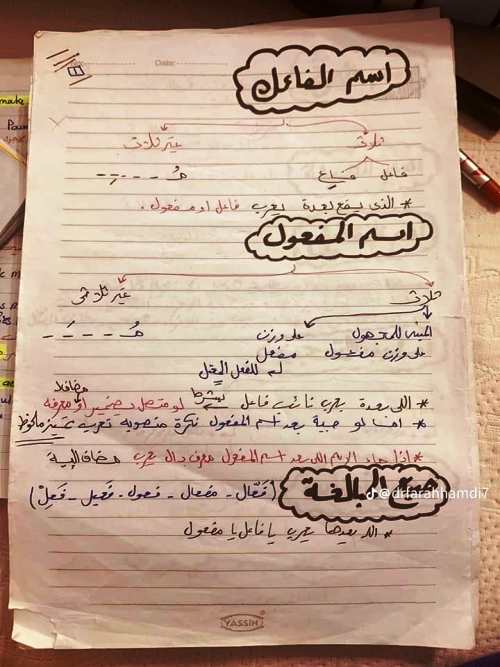 Date:
اسم الفاعل
ثلاثى غير ثلاثى
فاعل مُـ - - - ـِ -
* الذى يقع بعدة يعرب فاعل او مفعول .
اسم المفعول
ثلاثى غير ثلاثى
المبنى للمجهول على وزن مُـ - - - ـَ -
على وزن مفعول مفعل
للفعل
* اللى بعدة يعرب نائب فاعل بشرط لو متصل بضمير او معرفه
مضافا
* امتا لو جبنا بعد اسم المفعول نكرة منصوبه تعرب تمييز ملحوظ
* اذا جاء الاسم اللى بعد اسم المفعول معرف بال يعرب مضاف اليه
صيغ المبالغة
(فَعّال - مفعال - فعول - فعيل - فَعِل)
* اللى بعدها يعرب يا فاعل يا مفعول
@drfarahhamdi7
YASSIN
make